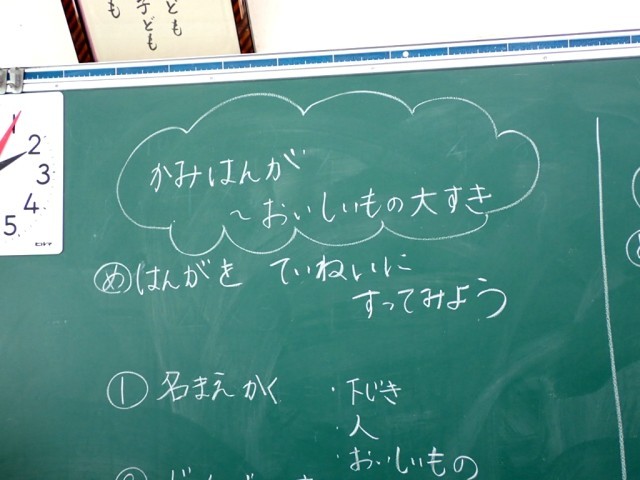 ども
子ども
も
1
2
3
4
5
かみはんが
～おいしいもの大すき
め はんがを ていねいに
すってみよう
① 名まえかく
・下じき
・人
・おいしいもの